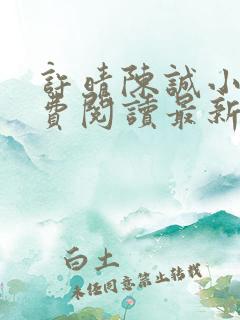 許晴陳誠小
費閱讀最新
白土
未经同意禁止转载